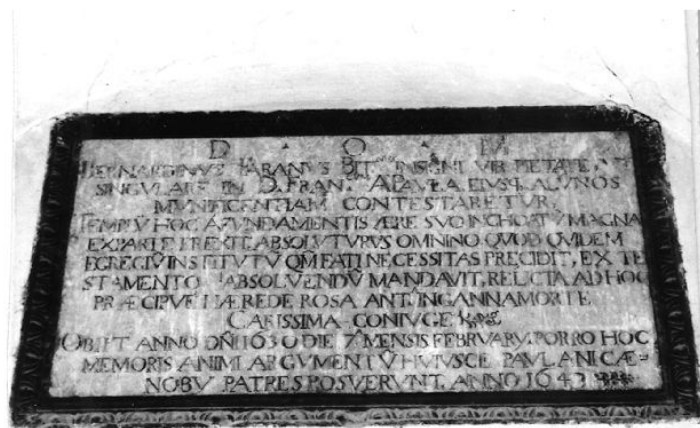 D O M
BERNARDINVS INSIGNI VIR PIETATE
SINGVLARE IN D. FRAN. A PAVLA EIVSQ. ALVNOS
MVNIFICENTIAM CONTESTARETVR
TEMPLV̄ HOC A FVNDAMENTIS ÆRE SVO INCHOATV̄ MAGNA
EX PARTE EREXIT ABSOLVTVRVS OMNINO QVOD QVIDEM
EGREGIV̄ INSTITVTV̄ QM̄ FATI NECESSITAS PRECIDIT, EX TE
STAMENTO ABSOLVENDV̄ MANDAVIT, RELICTA AD HOC
PRÆCIPVE HÆREDE ROSA ANT. INGANNAMORTE
CARISSIMA CONIVGE
OBIIT ANNO DÑI 1630 DIE 7 MENSIS FEBRVARY. PORRO HOC
MEMORIS ANIMI ARGVMENTV̄ HVIVSCE PAVLANI CÆ-
NOBY PATRES POSVERVNT. ANNO 1643